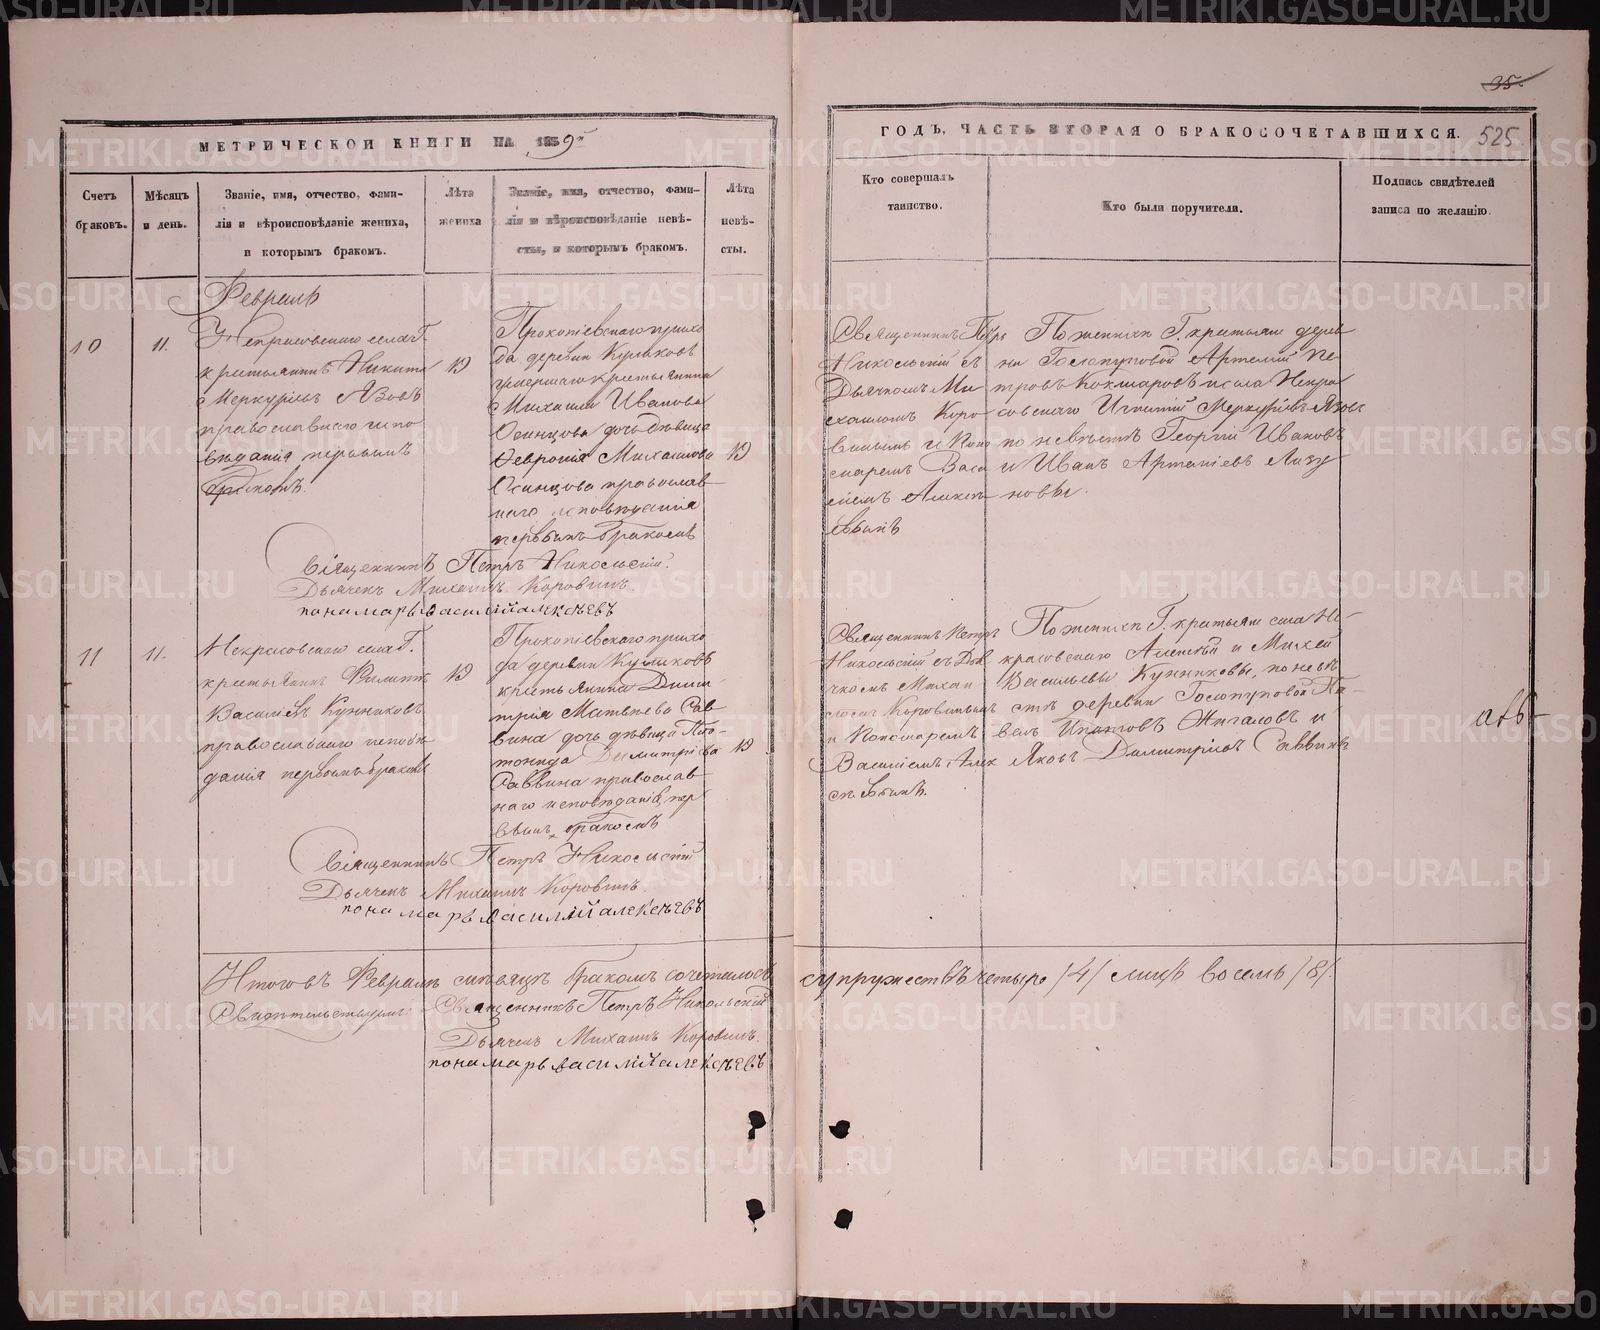 35
МЕТРИЧЕСКОЙ КНИГИ НА 1859й
ГОДЪ, ЧАСТЬ ВТОРАЯ О БРАКОСОЧЕТАВШИХСЯ.
525
Счетъ
браковъ.
Мѣсяцъ
и день.
Званіе, имя, отчество, фами-
лія и вѣроисповѣданіе жениха,
и которымъ бракомъ.
Лѣта
жениха
Званіе, имя, отчество, фами-
лія и вѣроисповѣданіе невѣ-
сты, и которымъ бракомъ.
Лѣта
невѣ-
сты.
Кто совершалъ
таинство.
Кто были поручители.
Подпись свидѣтелей
записа по желанію.
Февраль
10
11.
Некрасовскаго села Г.
крестьянинъ Никита
Меркурьевъ Язовъ
православнаго испо
вѣданія первымъ
бракомъ.
19
Прокопіевскаго прихо
да деревни Куликовъ
умершаго крестьянина
Михаила Иванова
Осинцова дочь дѣвица
Февронія Михайлова
Осинцова православ
наго исповѣданія
первымъ бракомъ
19
Священникъ Петръ
Никольскій съ
Дьячкомъ Ми
хаиломъ Коро
винымъ и Поно
маремъ Васи
ліемъ Алексѣ
евымъ
По женихѣ Г. крестьяне дерев
ни Голопуповой Артемій Пе
тровъ Кокшаровъ и села Некра
совскаго Игнатій Меркурьевъ Язовъ
по невѣстѣ Георгій Ивановъ
и Иванъ
новы.
Священникъ Петръ Никольскій.
Дьячекъ Михаилъ Коровинъ
пономарь василій алексѣевъ
11
11.
Некрасовскаго села Г.
крестьянинъ Филиппъ
Васильевъ Кунниковъ
православнаго исповѣ
данія первымъ бракомъ
19
Прокопіевскаго прихо
да деревни Куликовъ
крестьянина Дими
трія Матвѣева Сав
вина дочь дѣвица
Димитріева
Саввина православ
наго исповѣданія, пер
вымъ бракомъ
19
Священникъ Петръ
Никольскій съ Дья
чкомъ Михаи
ломъ Коровинымъ
и Пономаремъ
Василіемъ Алек
сѣевымъ.
По женихѣ Г. крестьяне села Не-
красовскаго Алексѣй и Михей
Васильевы Кунниковы, по невѣ
стѣ деревни Голопуповой Па-
велъ Ипатовъ Жигаловъ и
Яковъ Димитріевъ Саввинъ
Священникъ Петръ Никольскій
Дьячекъ Михаилъ Коровинъ.
пономарь василій алексѣевъ
Итого въ Февралѣ мѣсяцѣ бракомъ сочеталось супружествъ четыре /4/ лицъ восемь /8/.
Свидѣтельствуемъ: Священникъ Петръ Никольскій
Дьячекъ Михаилъ Коровинъ.
пономарь василій алексѣевъ
METRIKI.GASO-URAL.RU